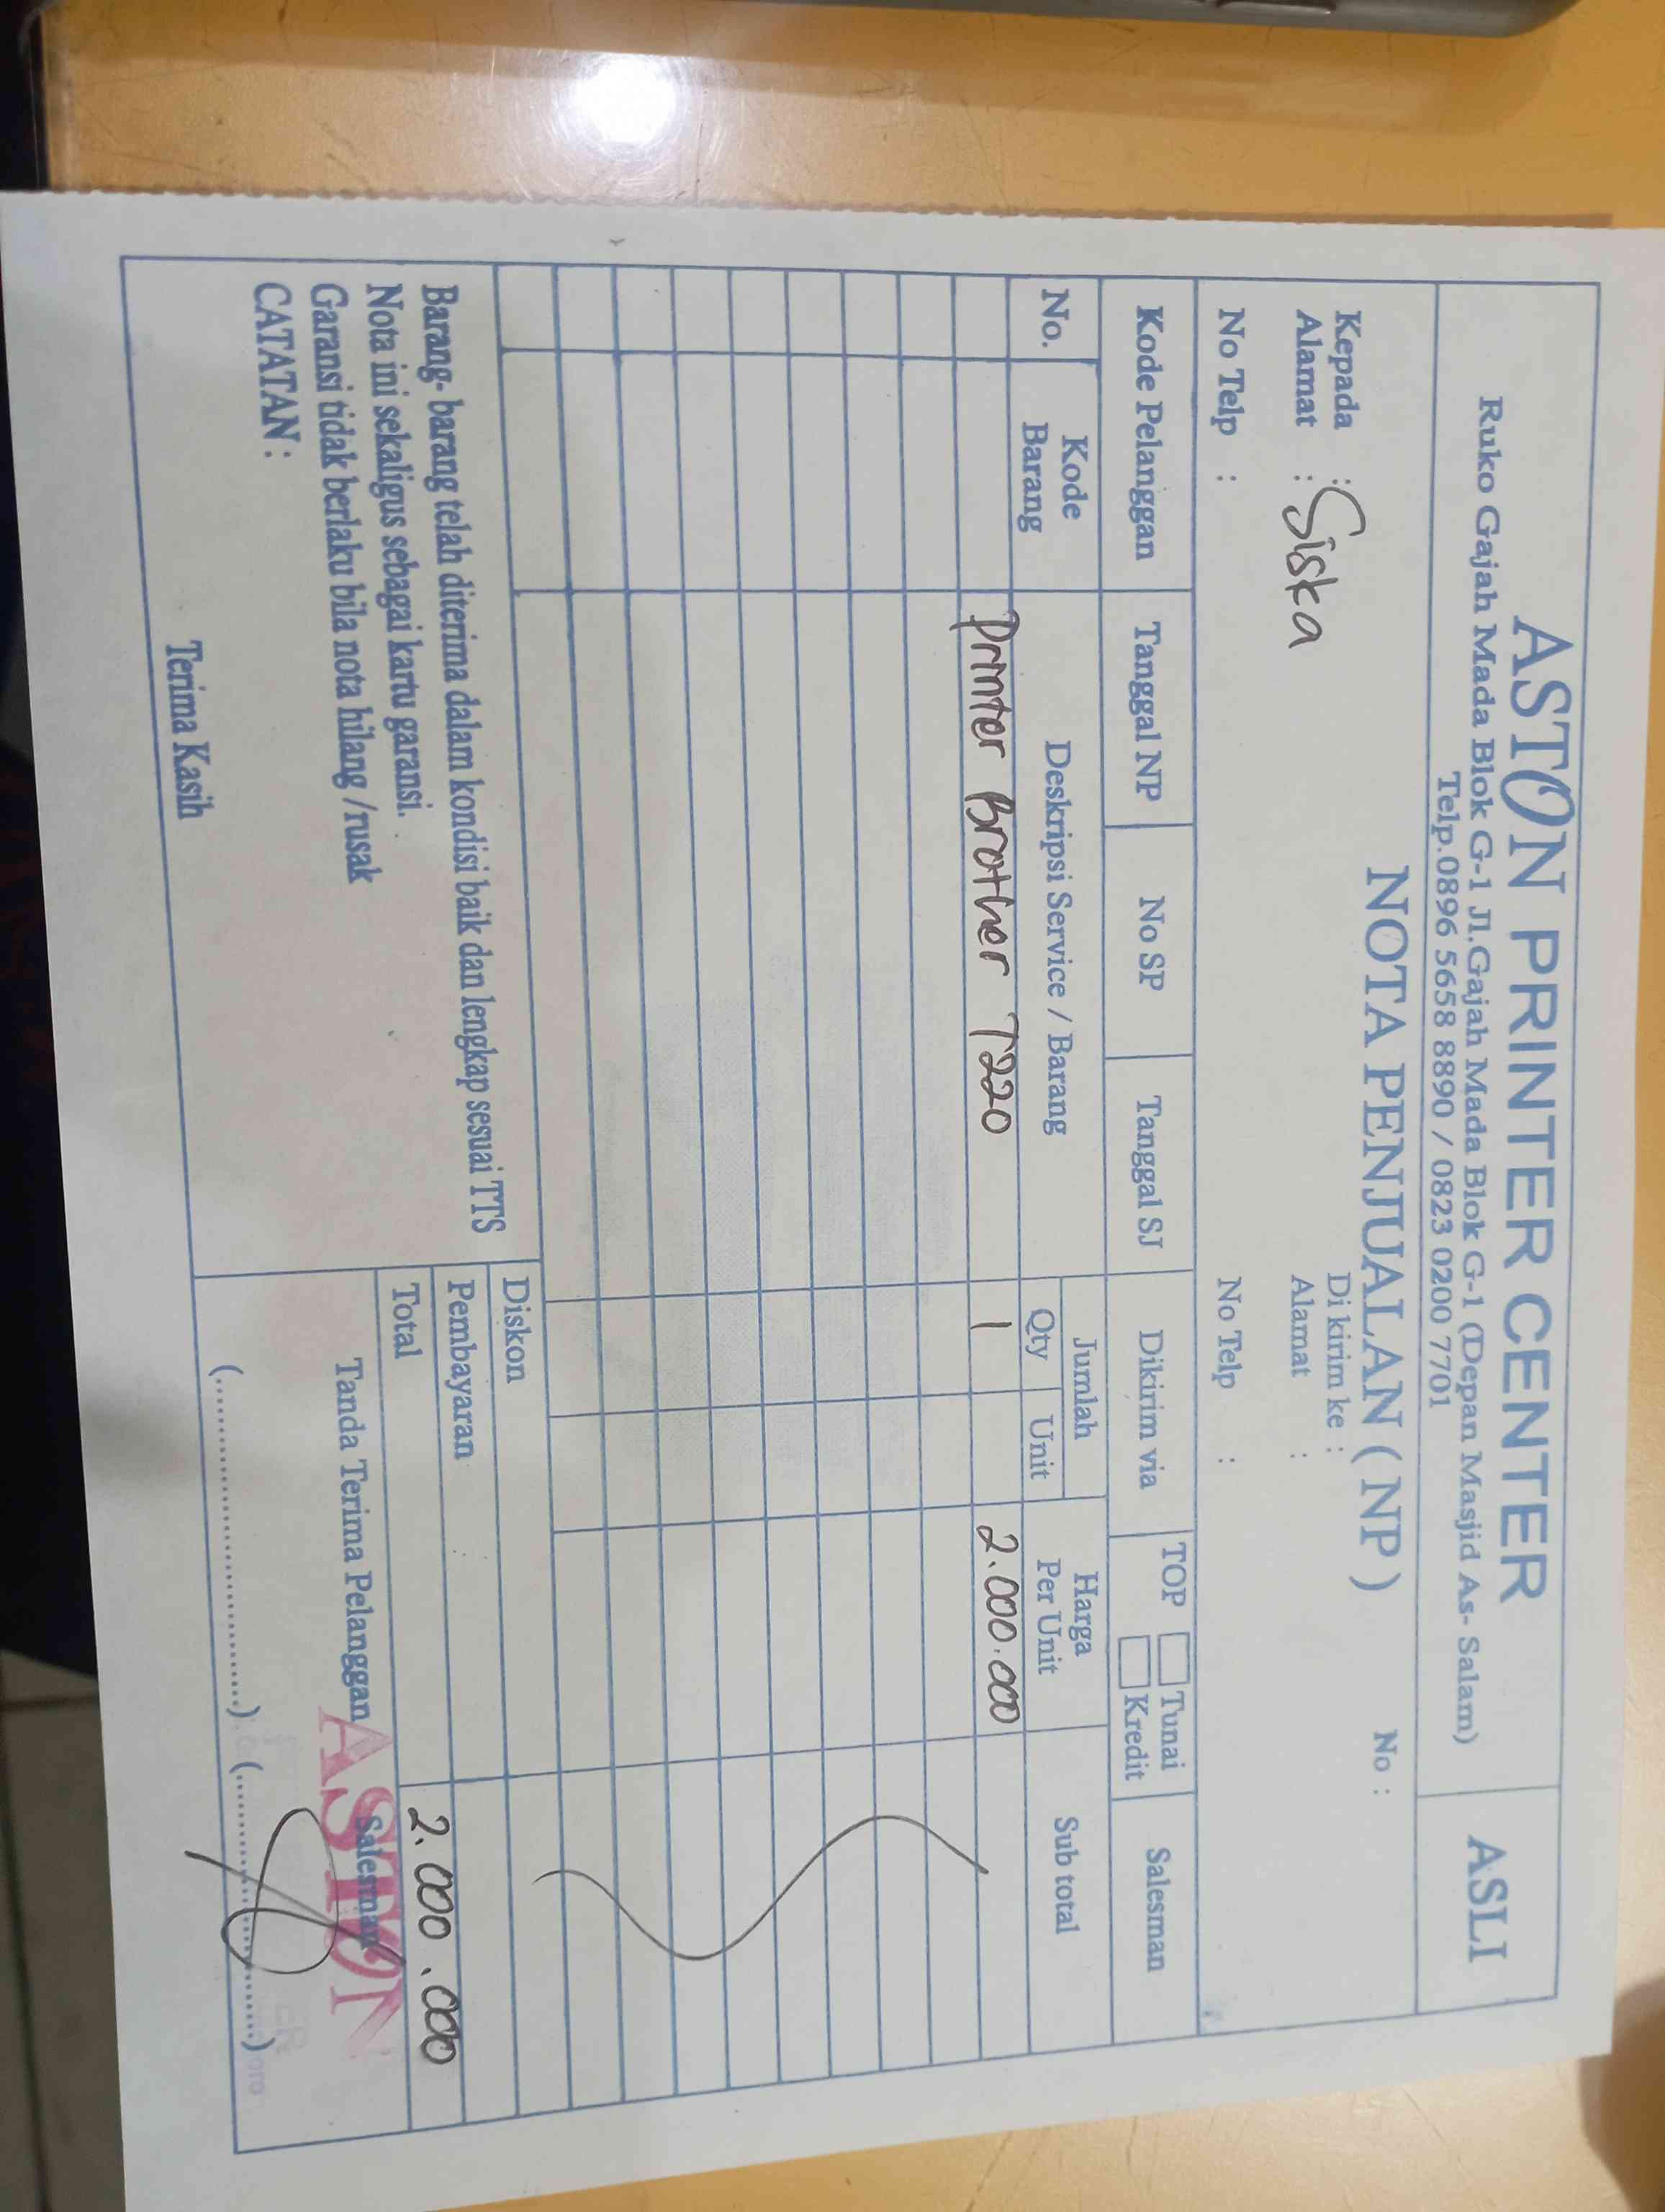 ASTON PRINTER CENTER
Ruko Gajah Mada Blok G-1 Jl.Gajah Mada Blok G-1 (Depan Masjid As- Salam)
Telp.0896 5658 8890 / 0823 0200 7701
ASLI
NOTA PENJUALAN ( NP )
No :
Kepada : Siska
Alamat :
No Telp :
Di kirim ke :
Alamat :
No Telp :
Kode Pelanggan Tanggal NP No SP Tanggal SJ Dikirim via TOP Tunai Kredit Salesman
No. Kode Barang Deskripsi Service / Barang Jumlah Qty Unit Harga Per Unit Sub total
Printer Brother T220 1 2.000.000
Diskon
Pembayaran
Total 2.000.000
Barang- barang telah diterima dalam kondisi baik dan lengkap sesuai TTS
Nota ini sekaligus sebagai kartu garansi.
Garansi tidak berlaku bila nota hilang /rusak
CATATAN :
Terima Kasih
Tanda Terima Pelanggan Salesman
ASTON
(..............................) (..............................)